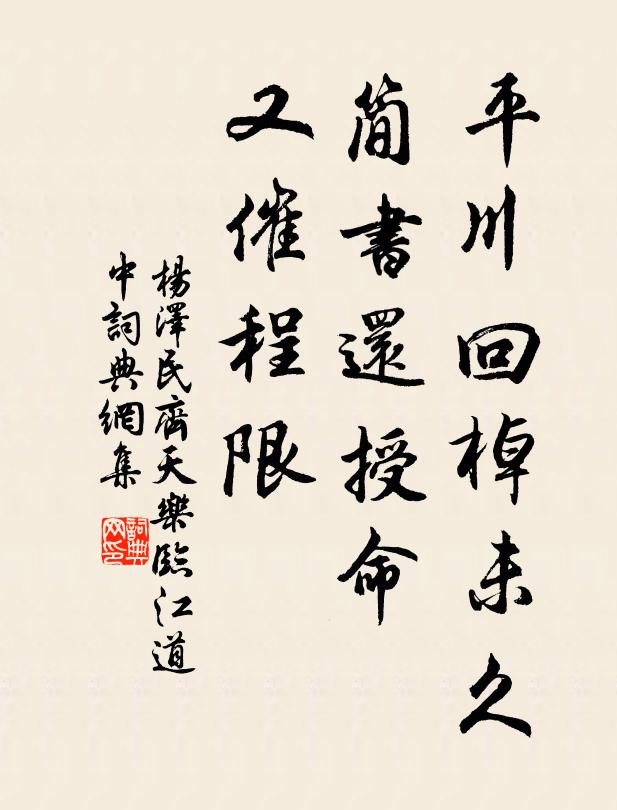 平川回棹未久
簡書還授命
又催程限
楊澤民齊天樂臨江道
中詞典網集
詞典
网印